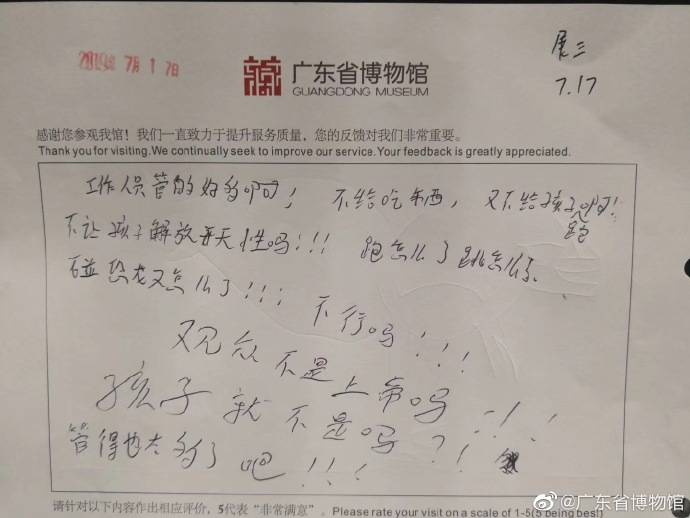 2019年 7月 17日
廣東省博物館
广东省博物馆
GUANGDONG MUSEUM
展三
7.17
感谢您参观我馆！我们一直致力于提升服务质量，您的反馈对我们非常重要。
Thank you for visiting.We continually seek to improve our service.Your feedback is greatly appreciated.
工作人员管的好多啊！不给吃东西，又不给孩子跑啊！
不让孩子解放天性吗！！！跑怎么了跳怎么了
碰恐龙又怎么了！！！不行吗！！！
观众不是上帝吗！！！
孩子就不是吗？！！
管得也太多了吧！！！
请针对以下内容作出相应评价，5代表“非常满意”。Please rate your visit on a scale of 1-5(5 being best)
@广东省博物馆